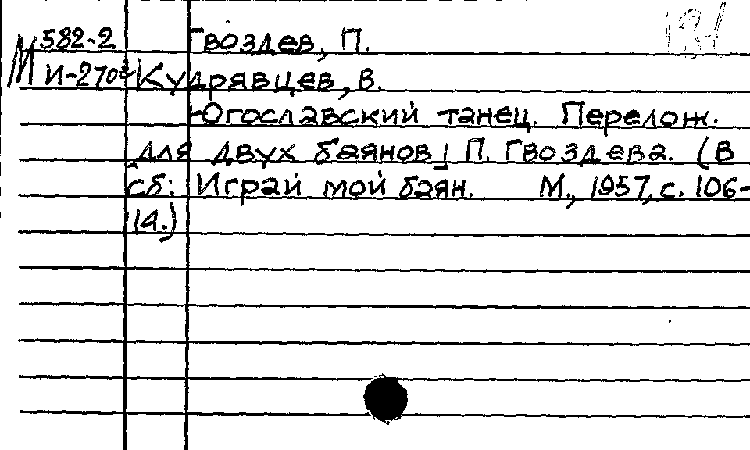 М 582-2 Гвоздев, П.
Кудрявцев, В.
Югославский танец. Перелож.
для двух баянов П. Гвоздева. (В
сб: Играй мой баян. М., 1957, с. 106-
14.)